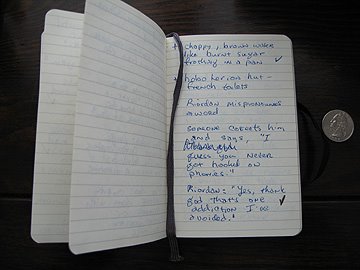 + choppy, brown water
like burnt sugar
frothing in a pan ✓
+ hobo heroin hut -
french toilets
Riordan mispronounces
a word
someone corrects him
and says, "I
guess you never
got hooked on
phonics."
Riordan: "Yes, thank
god that's one
addiction I've
avoided." ✓